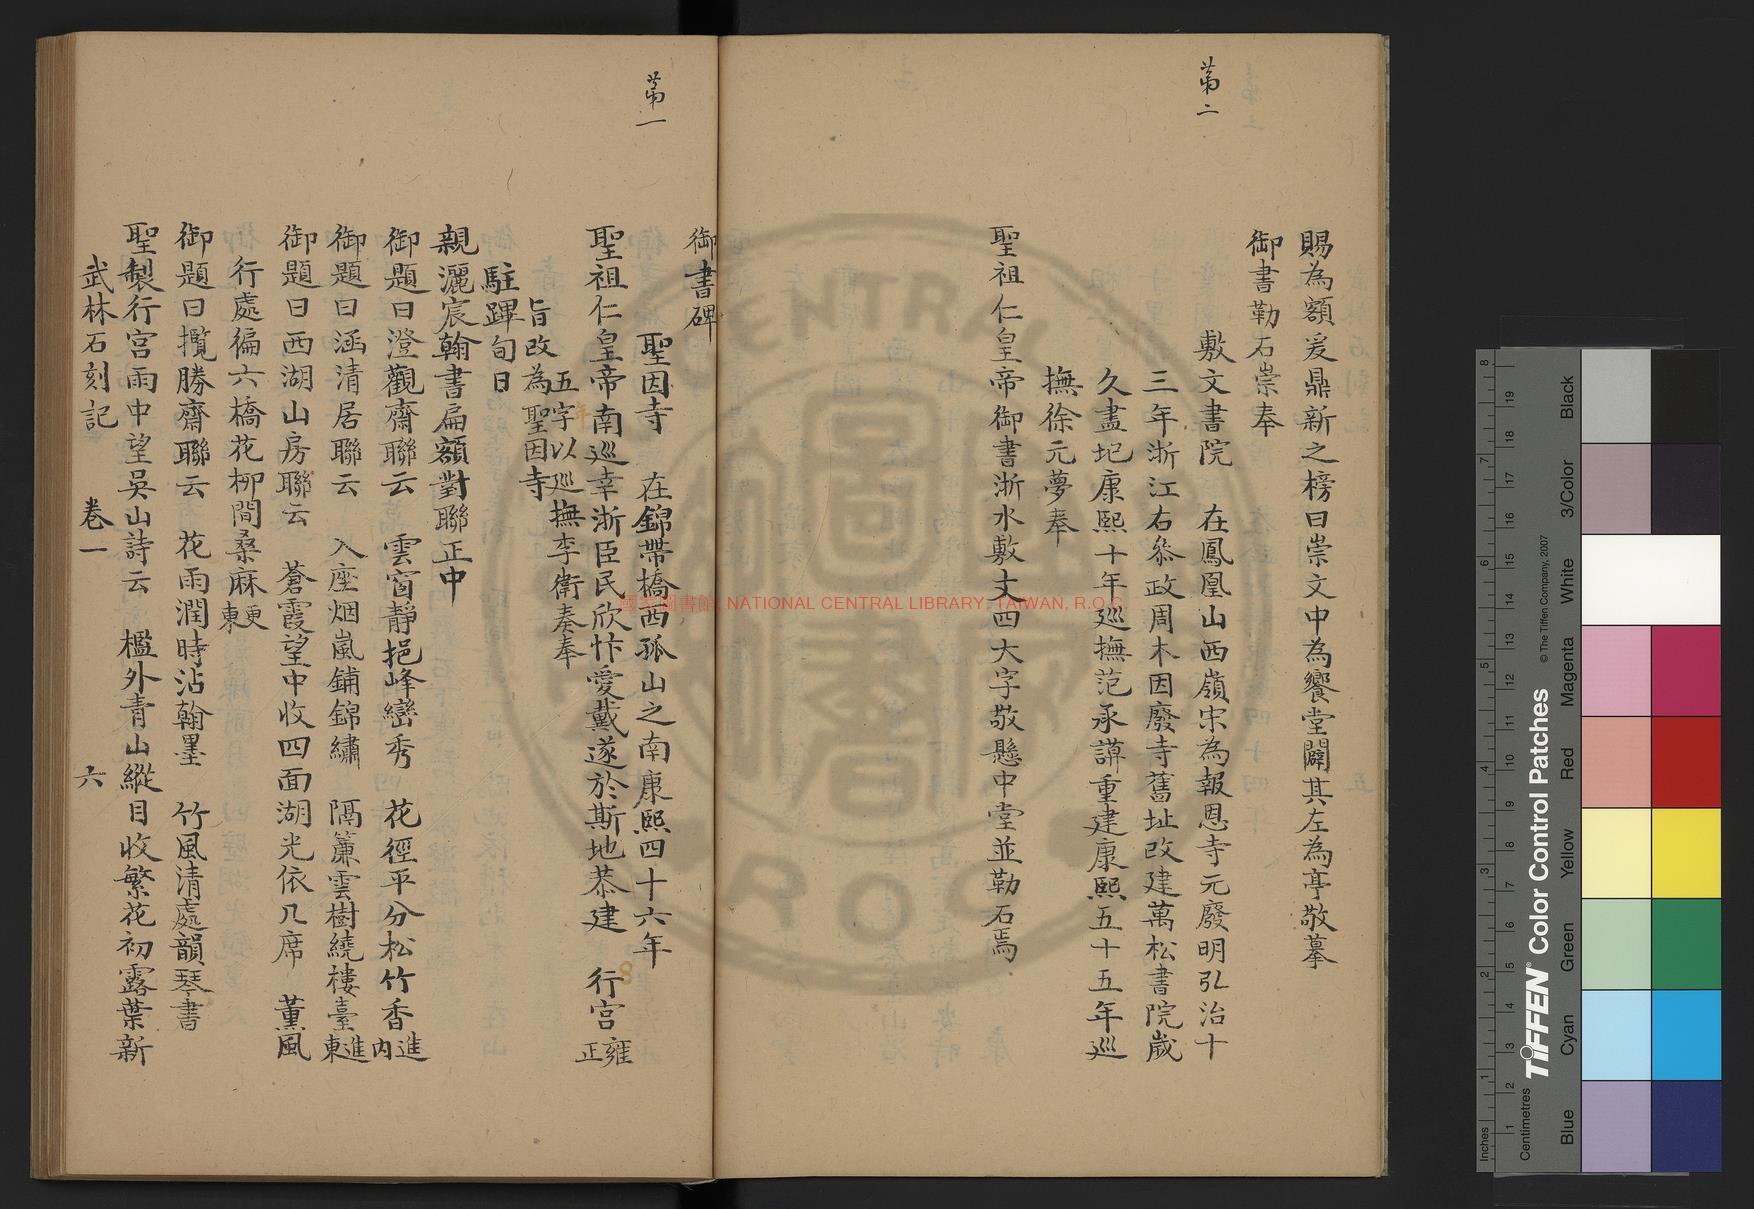 第二
賜為額爰鼎新之榜曰崇文中為饗堂闢其左為亭敬摹
御書勒石崇奉
敷文書院 在鳳凰山西嶺宋為報恩寺元廢明弘治十
三年浙江右叅政周木因廢寺舊址改建萬松書院歲
久盡圮康熙十年巡撫范承謨重建康熙五十五年巡
撫徐元夢奉
聖祖仁皇帝御書浙水敷文四大字敬懸中堂並勒石焉
第一
御書碑
聖因寺 在錦帶橋西孤山之南康熙四十六年
聖祖仁皇帝南巡幸浙臣民欣忭愛戴遂於斯地恭建 行宮雍正
五字以巡撫李衛奏奉
旨改為聖因寺
駐蹕旬日
親灑宸翰書扁額對聯正中
御題曰澄觀齋聯云 雲窗靜挹峰巒秀 花徑平分松竹香進內
御題曰涵清居聯云 入座烟嵐鋪錦繡 隔簾雲樹繞樓臺進東
御題曰西湖山房聯云 蒼霞望中收四面湖光依几席 薰風
行處徧六橋花柳間桑麻更東
御題曰攬勝齋聯云 花雨潤時沾翰墨 竹風清處韻琴書
聖製行宮雨中望吳山詩云 檻外青山縱目收繁花初露葉新
武林石刻記 卷一 六
國家圖書館, NATIONAL CENTRAL LIBRARY, TAIWAN, R.O.C
Inches
Centimetres
TIFFEN® Color Control Patches
© The Tiffen Company, 2007
Blue
Cyan
Green
Yellow
Red
Magenta
White
3/Color
Black